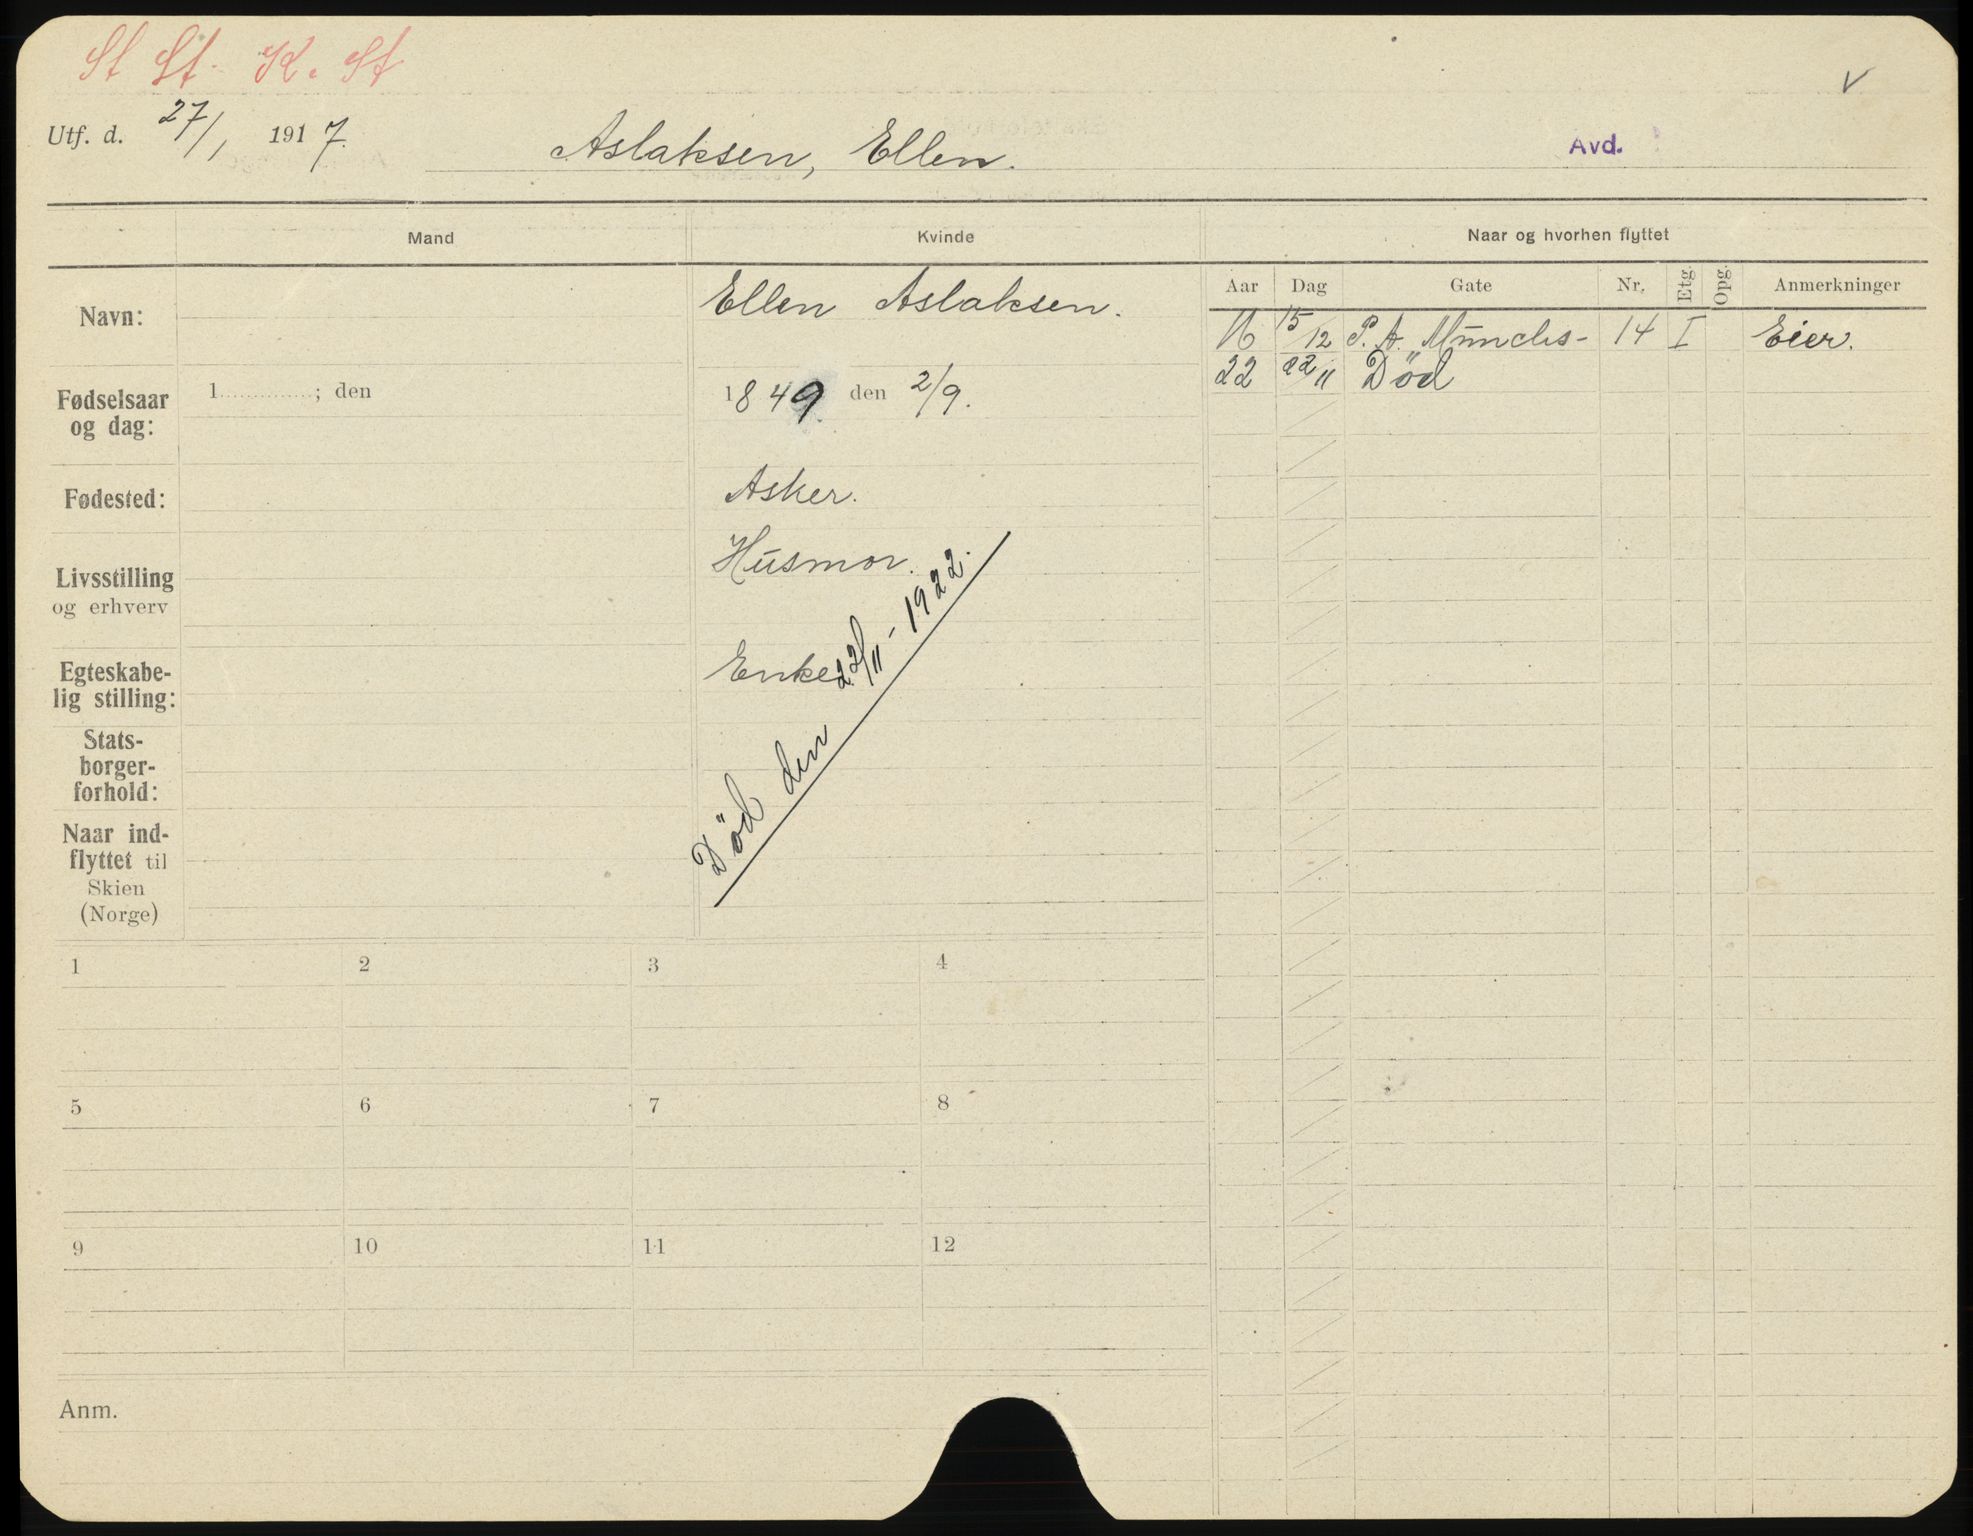 St St. K. St
V
Utf. d. 27/1 1917.
Aslaksen, Ellen.
Avd.
Mand
Kvinde
Naar og hvorhen flyttet
Aar Dag Gate Nr. Etg. Opg. Anmerkninger
16 15/12 P. A. Munchs- 14 I Eier.
22 22/11 Død
Navn:
Ellen Aslaksen.
Fødselsaar
og dag:
1 ; den
1849 den 2/9.
Fødested:
Asker.
Livsstilling
og erhverv
Husmor.
Egteskabe-
lig stilling:
Enke.
Død den 22/11-1922.
Stats-
borger-
forhold:
Naar ind-
flyttet til
Skien
(Norge)
1 2 3 4
5 6 7 8
9 10 11 12
Anm.